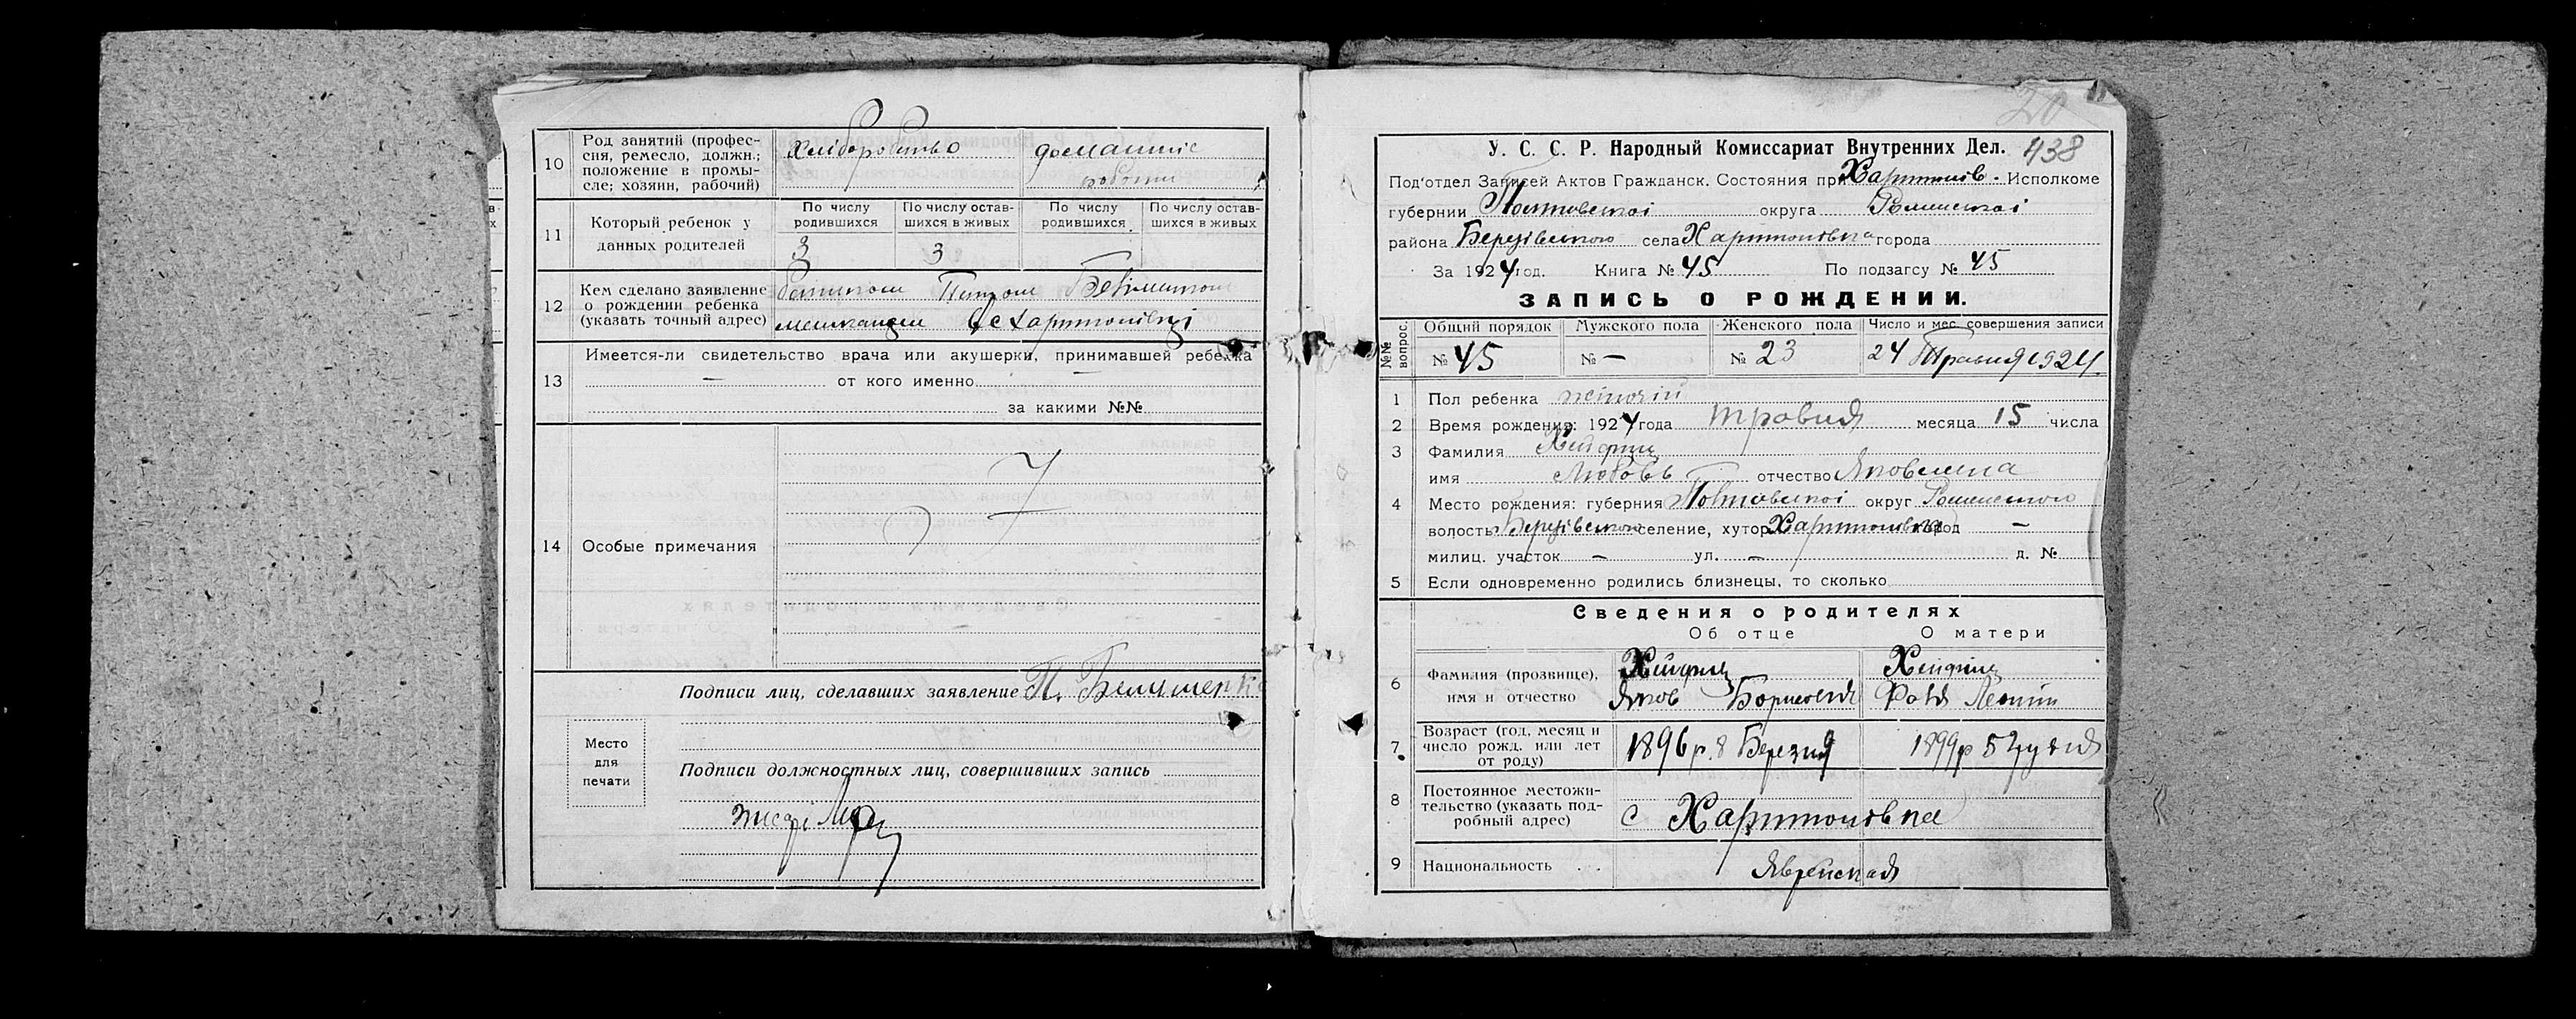 10
Род занятий (профес-
сия, ремесло, должн.;
положение в промы-
сле; хозяин, рабочий)
Хліборобство
домашнє
роботи
11
Который ребенок у
данных родителей
По числу
родившихся
По числу остав-
шихся в живых
По числу
родившихся
По числу остав-
шихся в живых
3
3
12
Кем сделано заявление
о рождении ребенка
(указать точный адрес)
Петром
мешканцем с Хартоновці
13
Имеется-ли свидетельство врача или акушерки, принимавшей ребенка
— от кого именно —
за какими №№
14
Особые примечания
Подписи лиц, сделавших заявление П.
Место
для
печати
Подписи должностных лиц, совершивших запись
20
438
У. С. С. Р. Народный Комиссариат Внутренних Дел.
Под'отдел Записей Актов Гражданск. Состояния при Исполкоме
губернии Полтавської округа Роменської
района Березівського села Харитонівка города
За 1924 год. Книга № 45 По подзагсу № 45
ЗАПИСЬ О РОЖДЕНИИ.
№№ вопрос.
Общий порядок
Мужского пола
Женского пола
Число и мес. совершения записи
№ 45
№ —
№ 23
24 Травня 1924.
1 Пол ребенка жіночій
2 Время рождения: 1924 года травня месяца 15 числа
3 Фамилия Хейфец
имя Любовь отчество Яковлевна
4 Место рождения: губерния Полтавської округ Роменського
волость Березівського селение, хутор Харитонівка город —
милиц. участок — ул. — д. №
5 Если одновременно родились близнецы, то сколько
Сведения о родителях
Об отце
О матери
6
Фамилия (прозвище),
имя и отчество
Хейфец
Яков Борисовія
Хейфец
7
Возраст (год, месяц и
число рожд. или лет
от роду)
1896 р. 8 Березня
1899 р 5 Грудня
8
Постоянное местожи-
тельство (указать под-
робный адрес)
с Харитоновка
9 Национальность . .
Яврейская